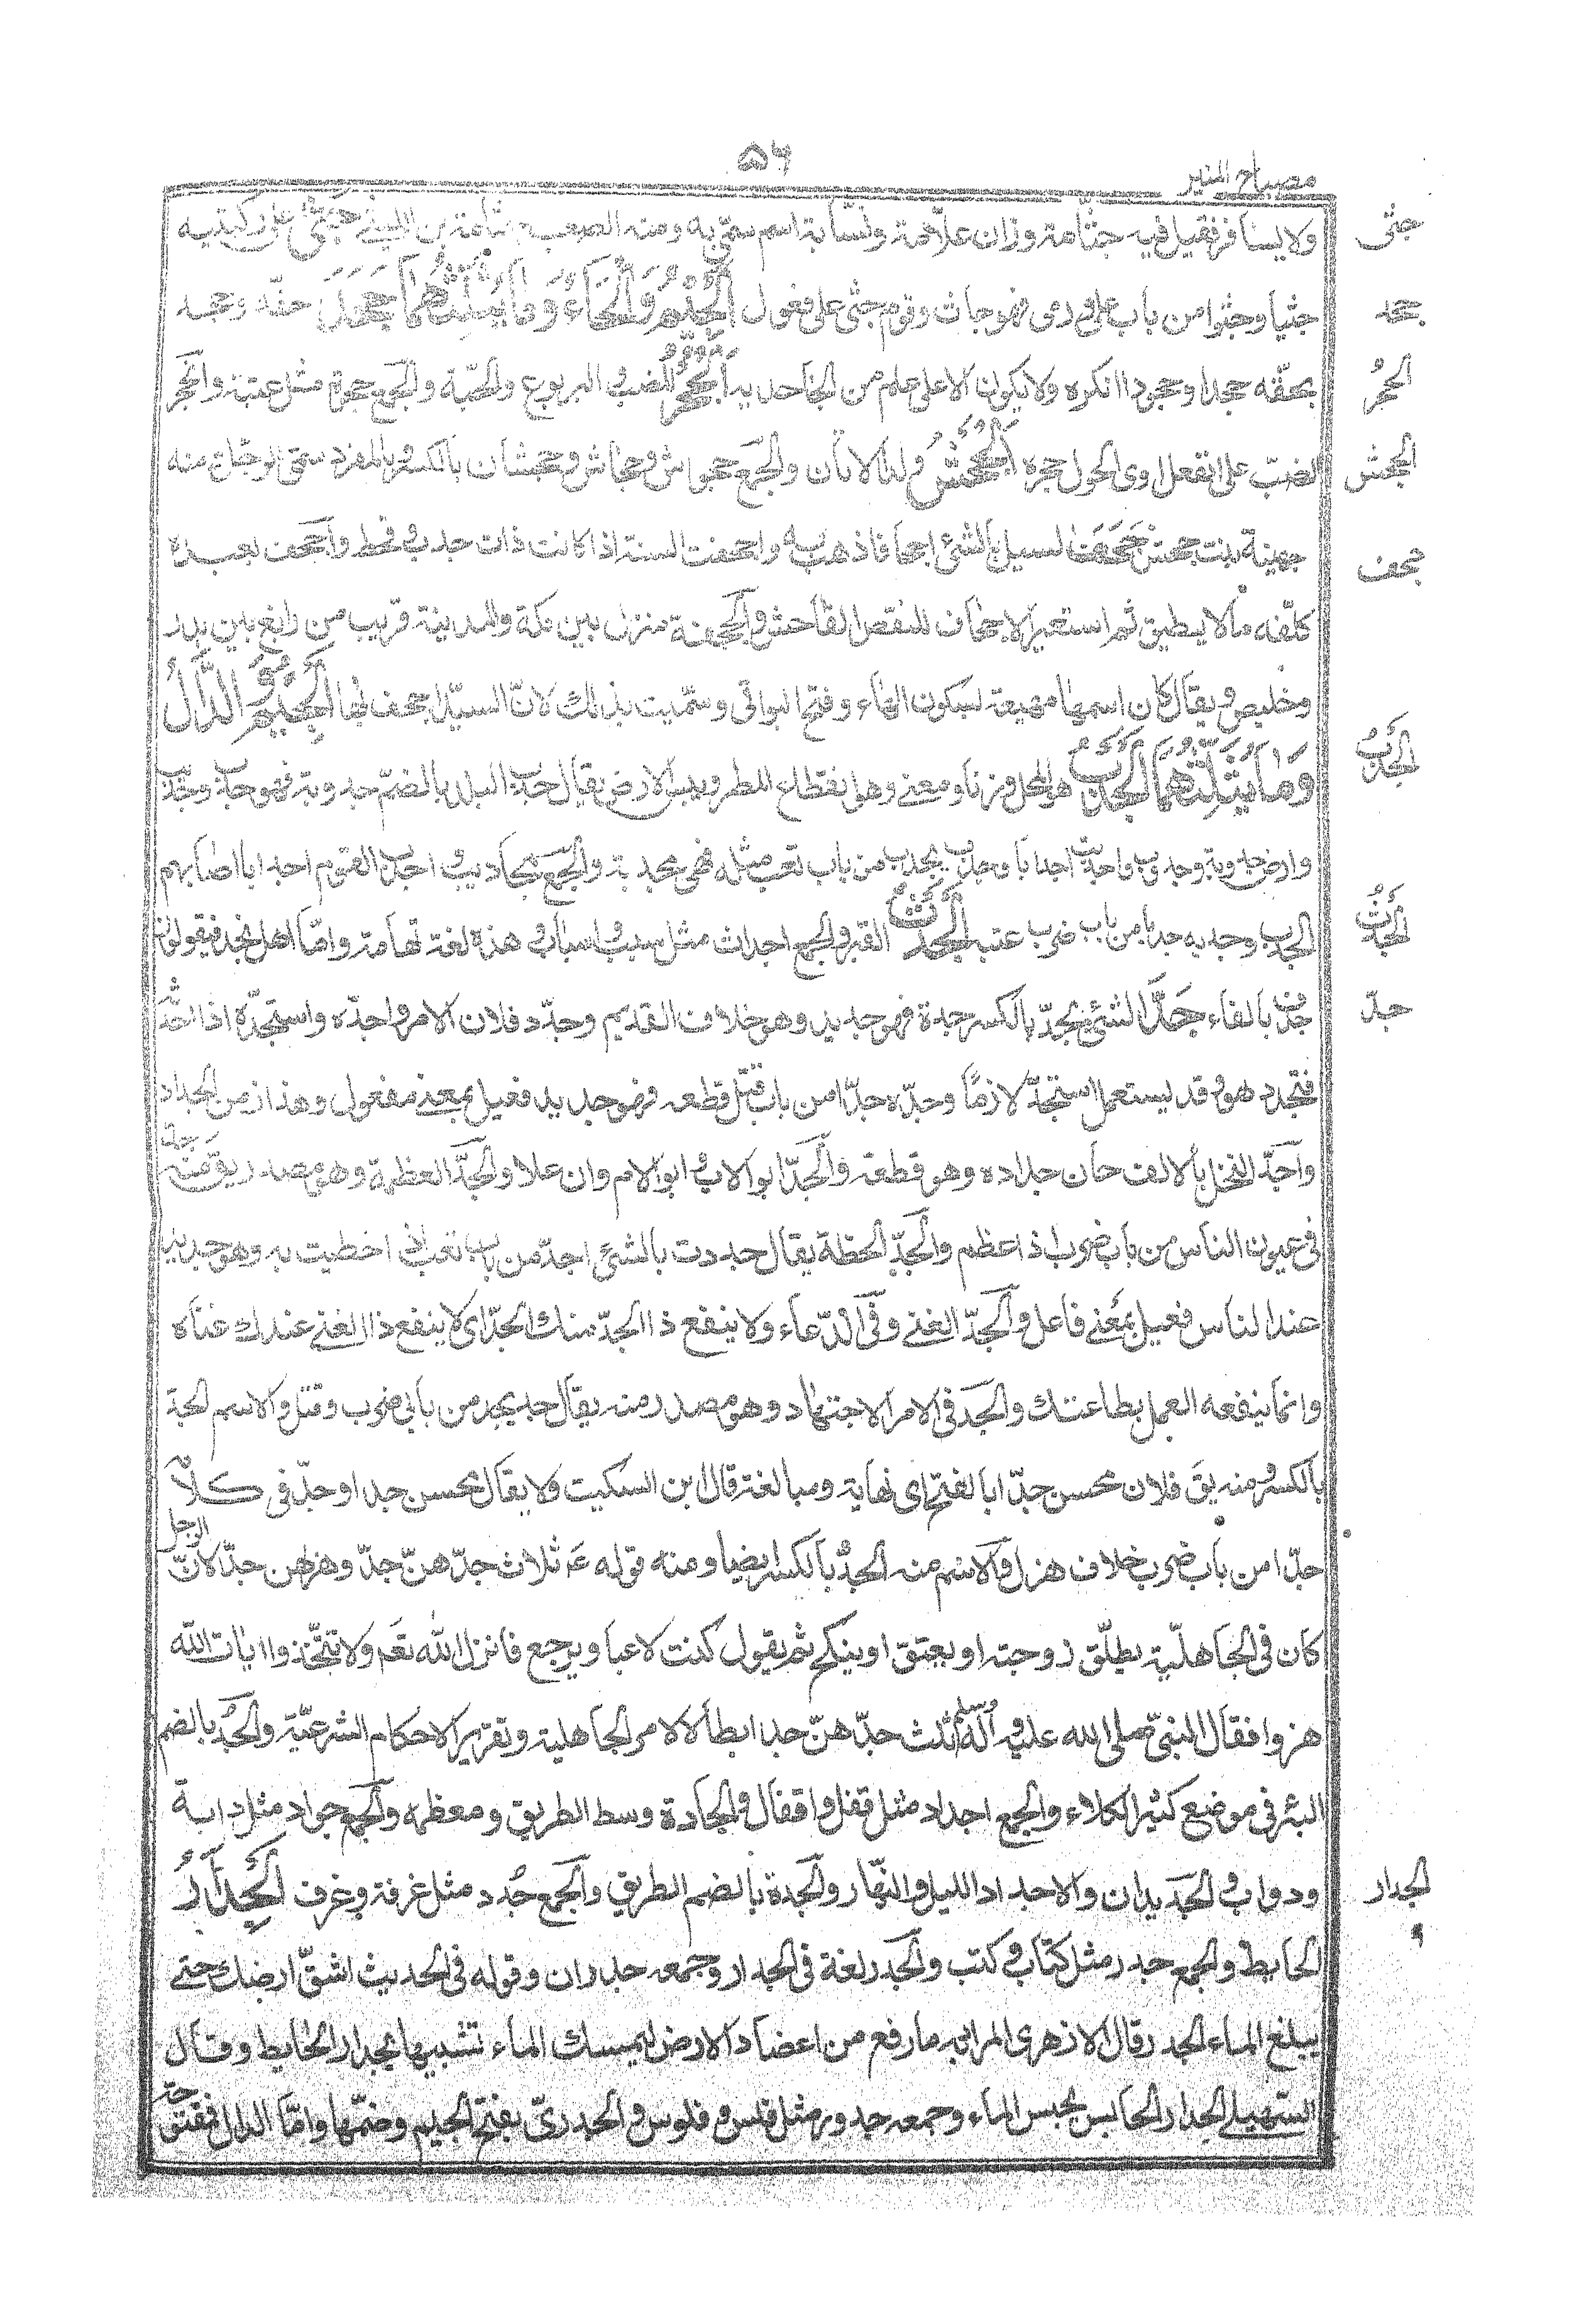 ۵۶
مصباح المنير
ولا يسافر فقيل فيه جثّامة وزان علاّمة ونسّابة اسم سمّى به ومنه الصعب بن جثّامة بن الليثى جَثَى على ركبتيه
جثيا وجثوا من باب على ورمى فهو جاث وقوم جثى على فعول الْجِيْمُ وَالْحَاءُ وَمَا يُثَلِّثُهُمَا جَحَدَ حقّه وبحقه
يجحده جحدا وجحودا انكره ولا يكون الا على علم من الجاحد به اَلْجُحْرُ للضب و اليربوع والحيّة والجمع جحرة مثل عنبة وانجحر
الضبّ على انفعل اوى الى جحره اَلْجَحْشُ ولد الاتان والجمع جحوش و جحاش و جحشان بالكسر و بالمفرد سمى الرجل و منه
حمنة بنت جحش جَحَفَ السيل بالشئ اجحافا ذهب به واجحفت السنة اذا كانت ذات جدب و قحط واجحف بعبده
كلّفه ما لا يطيق ثم استعير الاجحاف للنقص الفاحش والجحفة منزل بين مكة والمدينة قريب من رابغ بين بدر
وخليص و يقال كان اسمها مهيعة بسكون الهاء و فتح البواقى وسمّيت بذلك لانّ السيل جحف لها اَلْجِيْمُ وَ الدَّالُ
وَمَا يُثَلِّثُهُمَا اَلْجَدْبُ هو المحل وزنا ومعنى وهو انقطاع المطر ويبس الارض يقال جدب البلد بالضمّ جدوبة فهو جدب وجديب
وارض جدوبة وجدب واجدبت اجدابا وجدبت تجدب من باب تعب مثله فهى مجدبة والجمع مجاديب و اجدب القوم اجدابا اصابهم
الجدب وجدبه جدبا من باب ضرب عتبه اَلْجَدَثُ القبر و الجمع اجداث مثل سبب و اسباب و هذه لغة تهامة وامّا اهل نجد فيقولون
جدف بالفاء جَدَّ الشئ يجدّ بالكسر جدة فهو جديد وهو خلاف القديم وجدّد فلان الامر و اجدّه واستجدّه اذا احدثه
فتجدد هو و قد يستعمل استجدّ لازمًا وجدّه جدّا من باب قتل قطعه فهو جديد فعيل بمعنى مفعول وهذا زمن الجداد
واجدّ النخل بالالف حان جداده وهو قطعه والجدّ ابو الاب و ابو الام وان علا والجدّ العظمة وهو مصدر يق منه جدّ
فى عيون الناس من باب ضرب اذا عظم والجدّ الحظة يقال جددت بالشئ اجدّ من باب تعب اذا حظيت به وهو جديد
عند الناس فعيل بمعنى فاعل والجدّ الغنى وفى الدّعاء ولا ينفع ذا الجدّ منك الجدّ اى لا ينفع ذا الغنى عندك غناه
وانما ينفعه العمل بطاعتك والجد فى الامر الاجتهاد وهو مصدر منه يقال جد يجد من بابى ضرب وقتل والاسم الجد
بالكسر ومنه يق فلان محسن جدّا اى نهاية ومبالغة قال ابن السكيت ولا يقال محسن جدا بالفتح وجدّ فى كلامه
جدّا من باب ضرب خلاف هزل والاسم منه الجدّ بالكسر ايضا ومنه قوله ع م ثلاث جدّهنّ جدّ وهزلهن جدّ لانّ الرجل
كان فى الجاهليّة يطلّق زوجته او يعتق او ينكح ثم يقول كنت لاعبا ويرجع فانزل الله تعم ولا تتّخذوا ايات الله
هزوا فقال النبىّ صلى الله عليه و آله وسلم ثلث جدّهنّ جد ابطالا لامر الجاهلية وتقريرا لاحكام الشرعيّة والجُدّ بالضم
البئر فى موضع كثير الكلاء والجمع اجداد مثل قفل واقفال والجادة وسط الطريق ومعظمه والجمع جواد مثل دابة
ودواب و الجديدان والاجدان الليل والنّهار والجدة بالضم الطريق والجمع جُدد مثل غرفة وغرف اَلْجِدَارُ
الحايط والجمع جدر مثل كتاب و كتب والجدر لغة فى الجدار وجمعه جدران وقوله فى الحديث اسق ارضك حتى
يبلغ الماء الجدر قال الازهرى المراد به ما رفع من اعضاد الارض ليمسك الماء تشبيها بجدار الحايط وقال
السّهيلى الجدار الحابس يحبس الماء وجمعه جدور مثل فلس و فلوس و الجدرىّ بفتح الجيم وضمّها وامّا الدال فمفتوحة
جثى
جحد
الجحرُ
الجحش
جحف
الجَدْبُ
الجَدَثُ
جدّ
الجدار